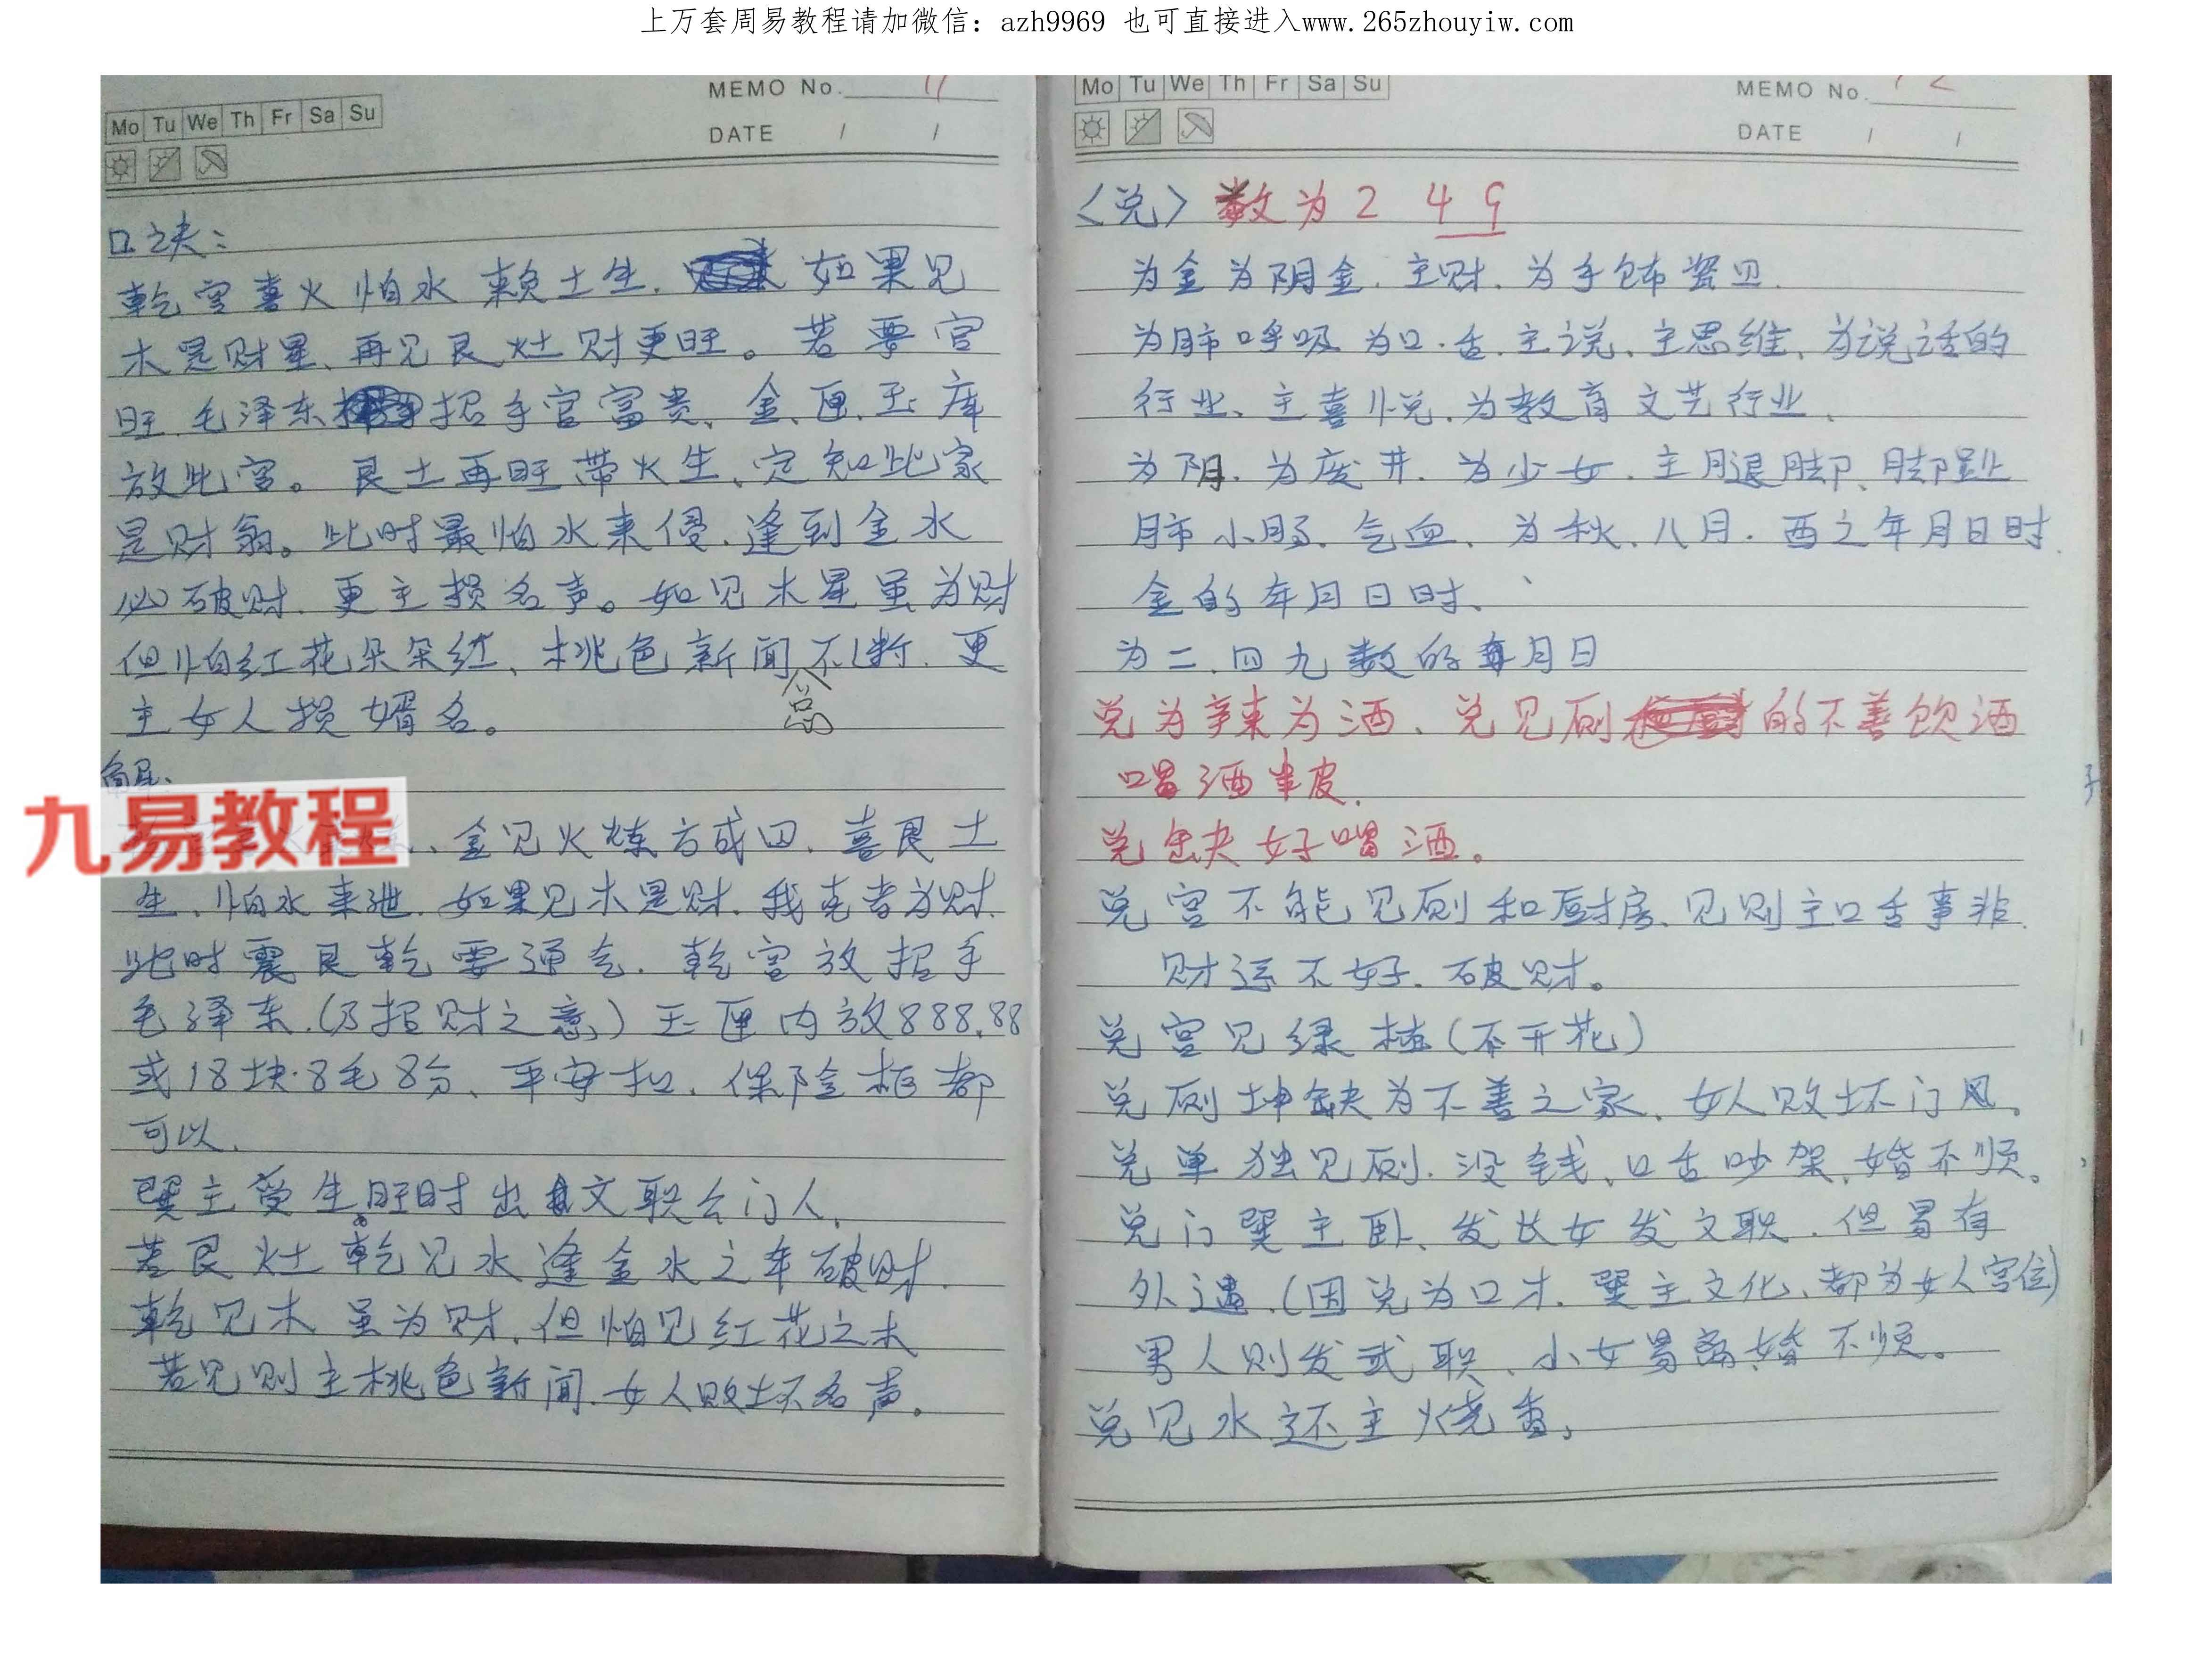 上万套周易教程请加微信：azh9969 也可直接进入www.265zhouyiw.com
Mo Tu We Th Fr Sa Su
MEMO No. 11
DATE / /
口诀：
乾宫喜火怕水赖土生.如果见
木是财星、再见艮灶财更旺。若要官
旺.毛泽东招手官富贵、金、匣、玉、库
放此宫。艮土再旺带火生、定知此家
是财翁。此时最怕水来侵、逢到金水
必破财.更主损名声。如见木星虽为财
但怕红花朵朵红、桃色新闻不断.更
主女人损婿名。
解、
金见火炼方成四.喜艮土
生、怕水来泄.如果见木是财.我克者为财.
此时震艮乾要通气.乾宫放招手
毛泽东.(乃招财之意)玉匣内放888.88
或18块8毛8分、平安扣、保险柜都
可以、
巽主受生旺时出文职公门人、
若艮灶乾见水逢金水之年破财.
乾见木虽为财.但怕见红花之木
若见则主桃色新闻.女人败坏名声。
九易教程
Mo Tu We Th Fr Sa Su
MEMO No. 12
DATE / /
〈兑〉数为2 4 9
为金为阴金.主财.为手饰宝贝.
为肺呼吸为口.舌.主说、主思维、为说话的
行业、主喜悦.为教育文艺行业、
为阴.为废井.为少女.主腿脚、脚趾
肺小肠、气血、为秋、八月.酉之年月日时.
金的年月日时、
为二.四九数的年月日
兑为辛辣为酒、兑见厕的不善饮酒
喝酒半皮.
兑缺好喝酒。
兑宫不能见厕和厨房、见则主口舌事非.
财运不好.破财。
兑宫见绿植(不开花)
兑厕坤缺为不善之家、女人败坏门风。
兑单独见厕.没钱、口舌吵架、婚不顺。
兑门巽主卧、发长女发文职.但易有
外遇.(因兑为口才.巽主文化、都为女人宫位)
男人则发武职、小女易离婚不顺。
兑见水还主烧香、